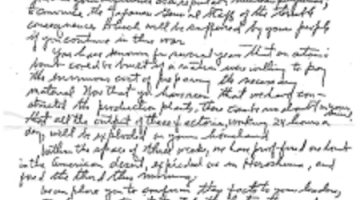 to convince the Japanese General Staff of the terrible
consequences which will be suffered by your people
if you continue in this war.
You have known for several years that an atomic
bomb could be built if a nation were willing to pay
the enormous cost of preparing the necessary
material. Now that you have seen that we have con-
structed the production plants, there can be no doubt in your
that all the output of these factories, working 24 hours a
day, will be exploded on your homeland.
Within the space of three weeks, we have proof-fired one bomb
in the American desert, exploded one in Hiroshima, and
fired the third this morning.
We implore you to confirm these facts to your leaders,